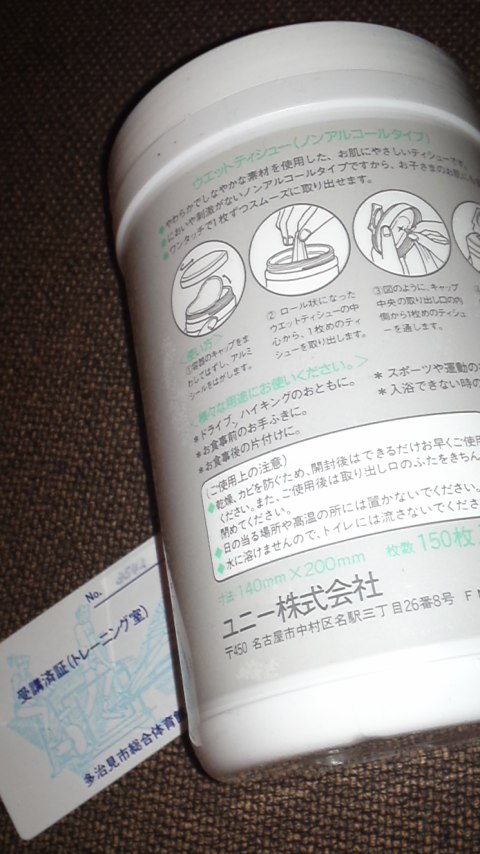 ウエットティシュー(ノンアルコールタイプ)
●やわらかでしなやかな素材を使用した、お肌にやさしいティシューです。
●においや刺激がないノンアルコールタイプですから、お子さまのお肌に
●ワンタッチで1枚ずつスムーズに取り出せます。
<使い方>
①容器のキャップをま
わしてはずし、アルミ
シールをはがします。
② ロール状になった
ウエットティシューの中
心から、1枚めのティ
シューを取り出します。
③図のように、キャップ
中央の取り出し口の内
側から1枚めのティシュ
ーを通します。
<様々な用途にお使いください。>
＊ドライブ、ハイキングのおともに。
＊お食事前のお手ふきに。
＊お食事後の片付けに。
＊スポーツや運動の
＊入浴できない時の
(ご使用上の注意)
◆乾燥、カビを防ぐため、開封後はできるだけお早くご使用
ください。また、ご使用後は取り出し口のふたをきちん
閉めてください。
◆日の当る場所や高温の所には置かないでください。
◆水に溶けませんので、トイレには流さないでくださ
寸法 140mm×200mm 枚数 150枚
ユニー株式会社
〒450 名古屋市中村区名駅三丁目26番8号
No.
受講済証(トレーニング室)
多治見市総合体育館